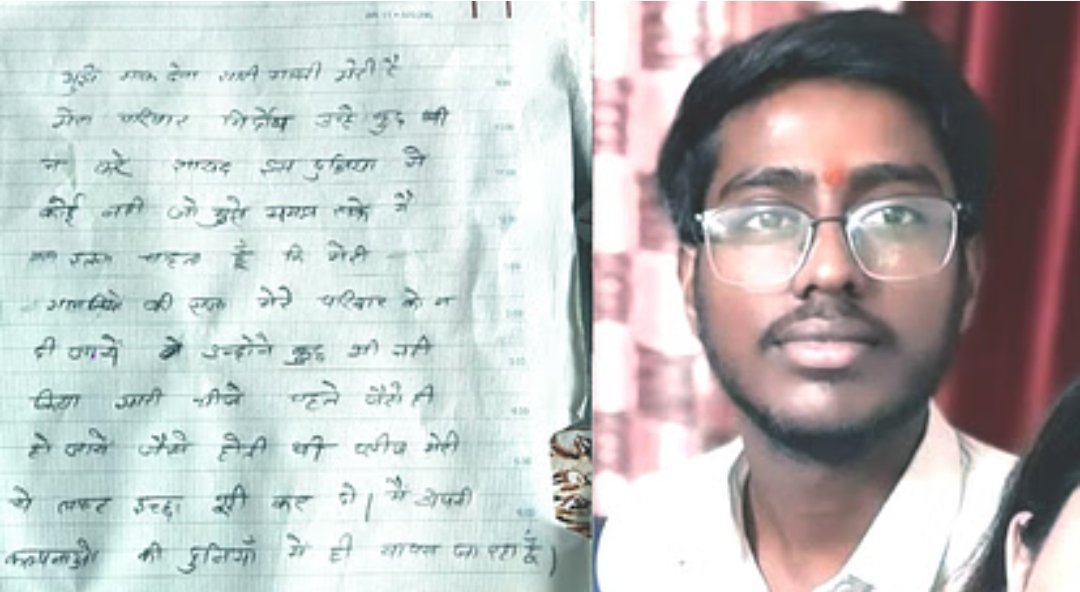 मुझे माफ देना सारी गलती मेरी है
मेरा परिवार निर्दोष उन्हे कुछ भी
न करे सायद इस दुनिया मे
कोई नही जो मुझे समझ सके मै
बस इतना चाहता हूँ कि मेरी
गलतियो की सजा मेरे परिवार को न
दी जाये उन्होने कुछ भी नही
किया सारी चीजे पहले जैसे ही
हो जाये जैसे होती थी प्लीज मेरी
ये लास्ट इच्छा पूरी कर दो। मै अपनी
कल्पनाओ की दुनियाँ मे ही वापस जा रहा हूँ।